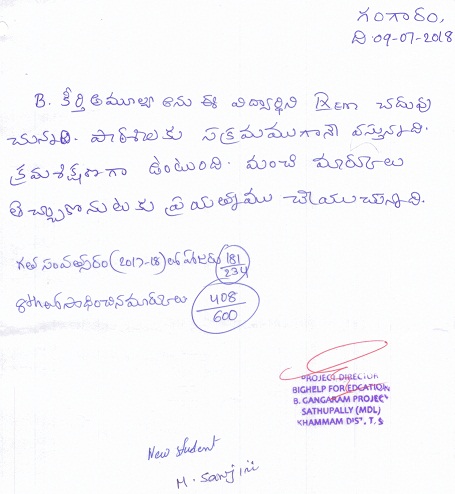 గంగారం,
ది 09-07-2018
B. కీర్తి అమూల్య అను ఈ విద్యార్థిని IX em చదువు
చున్నది. పాఠశాలకు సక్రమముగానే వస్తున్నది.
క్రమశిక్షణగా ఉంటుంది. మంచి మార్కులు
తెచ్చుకొనుటకు ప్రయత్నము చేయుచున్నది.
గత సంవత్సరం (2017-18) లో హాజరు 181/234
8th లో సాధించిన మార్కులు 408/600
PROJECT DIRECTOR
BIGHELP FOR EDCATION
B. GANGARAM PROJECT
SATHUPALLY (MDL)
KHAMMAM DIST, T. S
New student
M. Sanjini